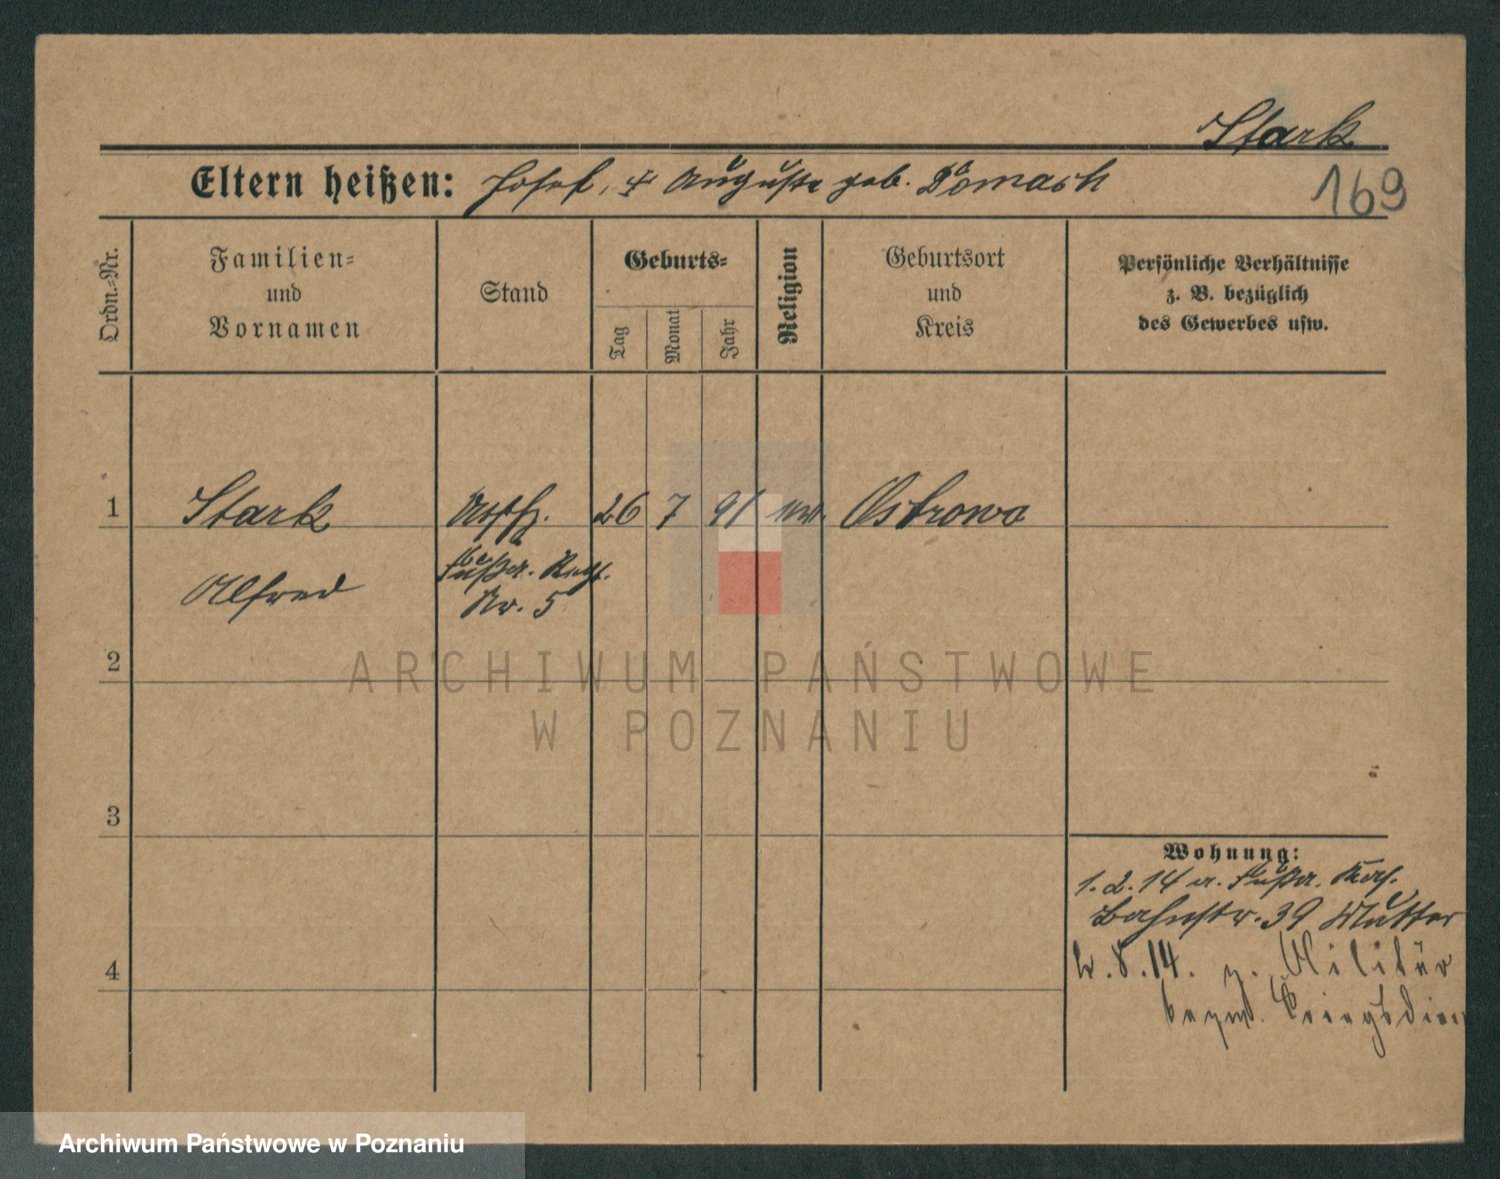 Stark
Eltern heißen: Josef, u Auguste geb. Domash
169
Ordn.-Nr.
Familien-
und
Vornamen
Stand
Geburts-
Tag
Monat
Jahr
Religion
Geburtsort
und
Kreis
Persönliche Verhältnisse
z. B. bezüglich
des Gewerbes usw.
1
Stark
26
7
91
Ostrowo
Alfred
Fußa. Regt.
Nr. 5
2
3
4
Wohnung:
1.2.14 a. Fußa. Kas.
Bahnstr. 39 Mutter
8.14. z. Militär
bezw. Kriegsdien
ARCHIWUM PAŃSTWOWE
W POZNANIU
Archiwum Państwowe w Poznaniu